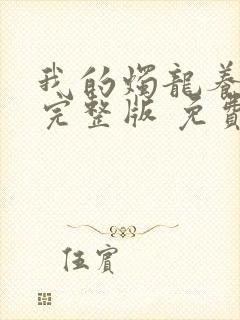 我的燭龍養
完整版 免費
伍賓